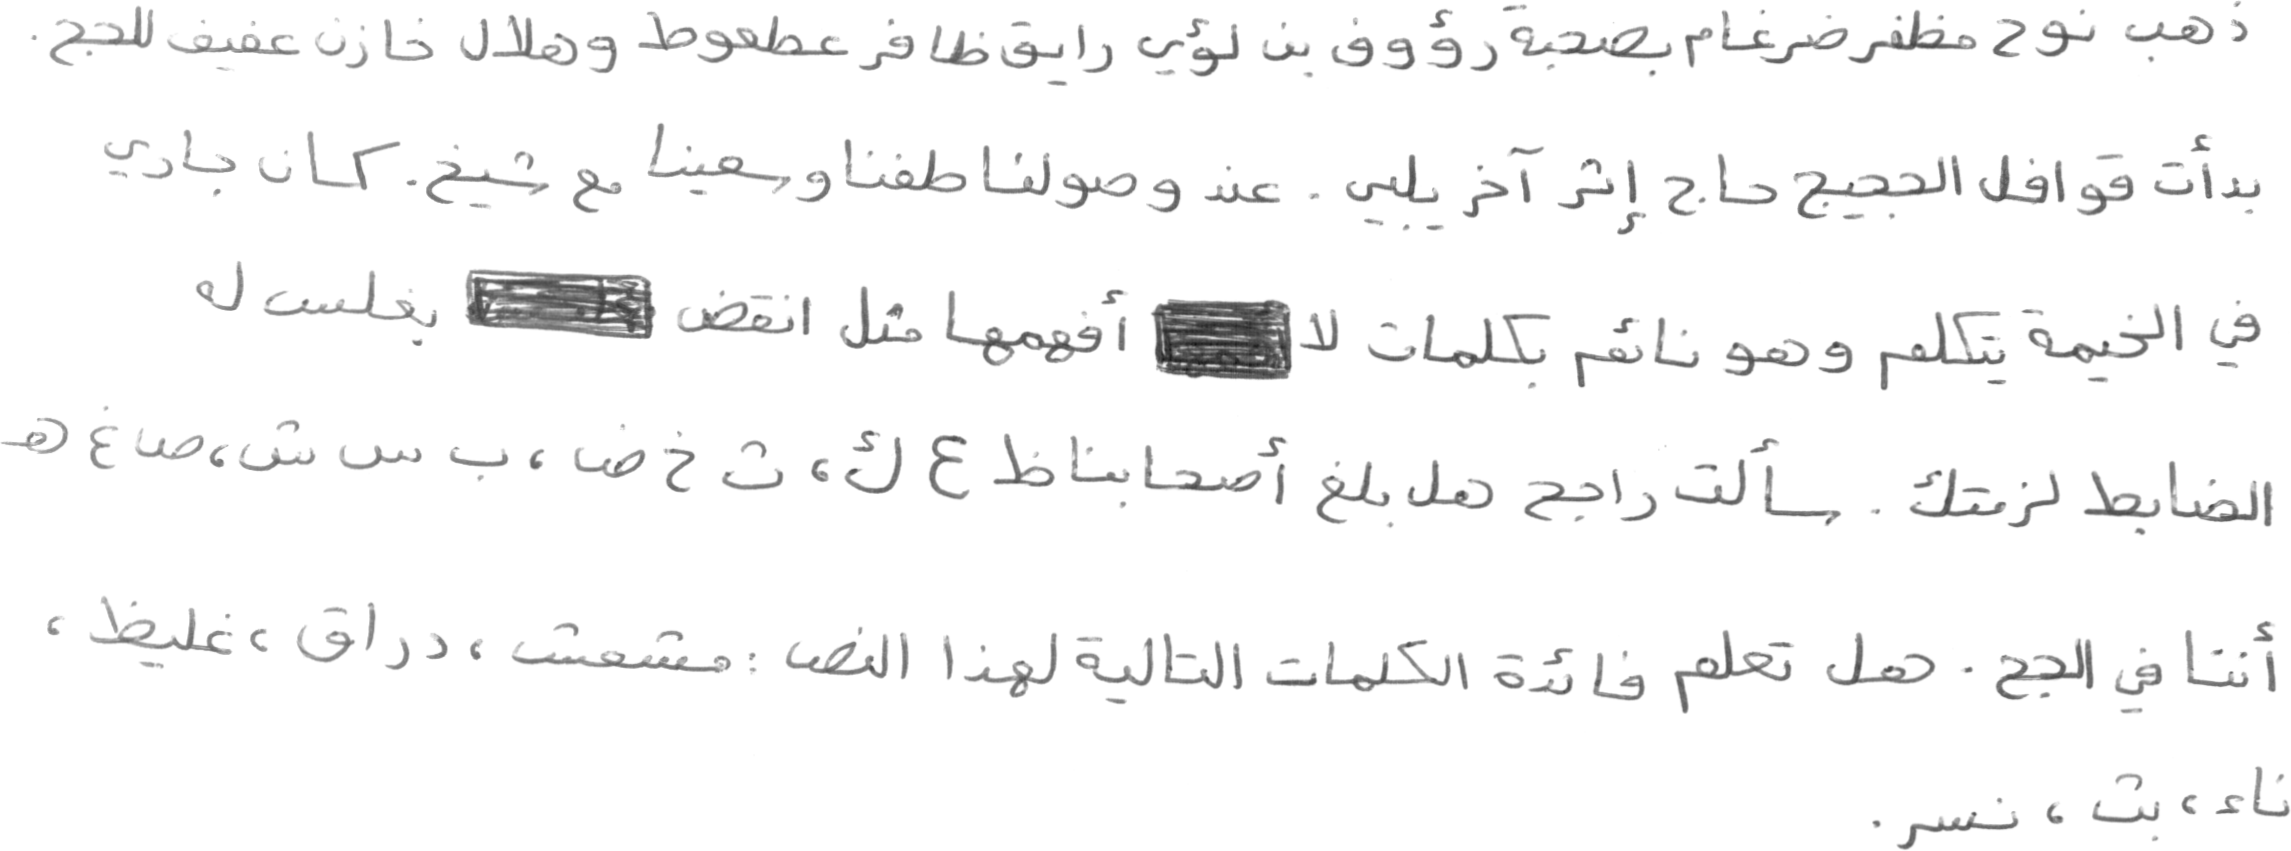 ذهب نوح مظفر ضرغام بصحبة رؤوف بن لؤي رايق ظافر عطعوط وهلال خازن عفيف للحج.
بدأت قوافل الحجيج حاج إثر آخر يلبي. عند وصولنا طفنا وسعينا مع شيخ. كان جاري
في الخيمة يتكلم وهو نائم بكلمات لا أفهمها مثل انقض بغلس له
الضابط لزمتك. سألت راجح هل بلغ أصحابنا ظ ع ك، ث خ ض، ب س ش، ص غ هـ
أننا في الحج. هل تعلم فائدة الكلمات التالية لهذا النص: مشمش، دراق، غليظ،
ناء، بث، نسر.